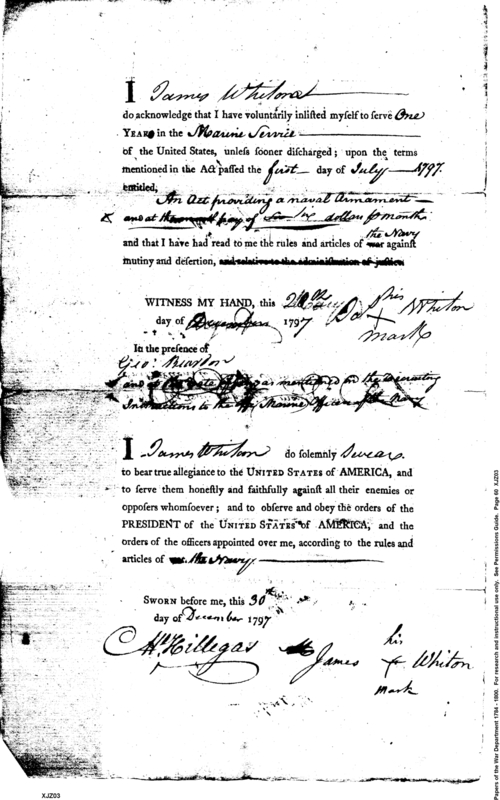 I James Whiton
do acknowledge that I have voluntarily inlisted myself to serve One
YEAR in the Marine Service
of the United States, unless sooner discharged; upon the terms
mentioned in the Act passed the first day of July 1797.
entitled,
An Act providing a naval Armament
and at the pay of dollars p month
the Navy
and that I have had read to me the rules and articles of war against
mutiny and desertion, and relative to the administration of justice
WITNESS MY HAND, this
day of December 1797 his Whiton
mark
In the presence of
Geo: Burton
and at the rate of pay as mentioned in the recruiting
Instructions to the Marine Officer of the Navy
I James Whiton do solemnly Swear
to bear true allegiance to the UNITED STATES of AMERICA, and
to serve them honestly and faithfully against all their enemies or
opposers whomsoever; and to observe and obey the orders of the
PRESIDENT of the UNITED STATES of AMERICA, and the
orders of the officers appointed over me, according to the rules and
articles of the Navy.
SWORN before me, this 30th
day of December 1797
Hillegas
his
James + Whiton
mark
XJZ03
Papers of the War Department 1784 - 1800. For research and instructional use only. See Permissions Guide. Page 60 XJZ03